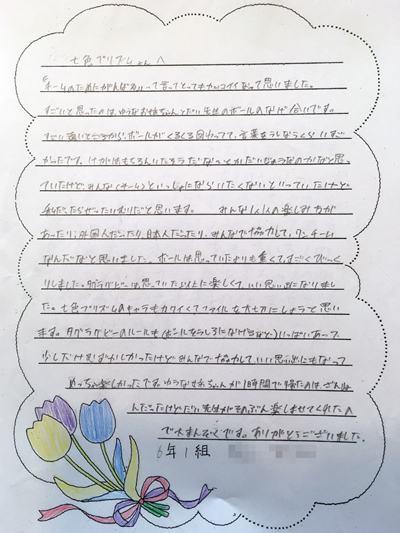 七色プリズムさんへ
チームのためにがんばるって言ってとってもカッコイイなって思いました。
すごいと思ったのは、ゆうなお姉ちゃんとたい先生のボールのなげ合いです。
すごい遠いところから、ボールがくるくる回わってて、言葉をうしなうくらいすご
かったです。けがはもちろんいたそうだなっとかだいじょうなのかなと思っ
ていたけど、みんな(チーム)といっしょにならいたくないといっていたけど、
私だったらぜったいむりだと思います。 みんな1人1人の楽しみ方が
あったり、外国人だったり、日本人だったり、みんなで協力して、ワンチーム
なんだなと思いました。ボールは思っていたよりも重くて、すごくびっく
りしました。タグラグビーは思っていたより楽しくて、いい思い出になりまし
た。七色プリズムのキャラもカワイくてファイルを大切にしようと思い
ます。タグラグビーのルールも(ボールをうしろになげるなど)いっぱいあって
少しだけむずかしかったけど、みんなで協力して、いい思い出にもなって
めっちゃ楽しかったです。ゆうなお姉ちゃんが1時間で帰ったのは、ざんね
んだったけど、たい先生がそのぶん楽しませてくれたの
で大まんぞくです。ありがとうございました。
6年1組